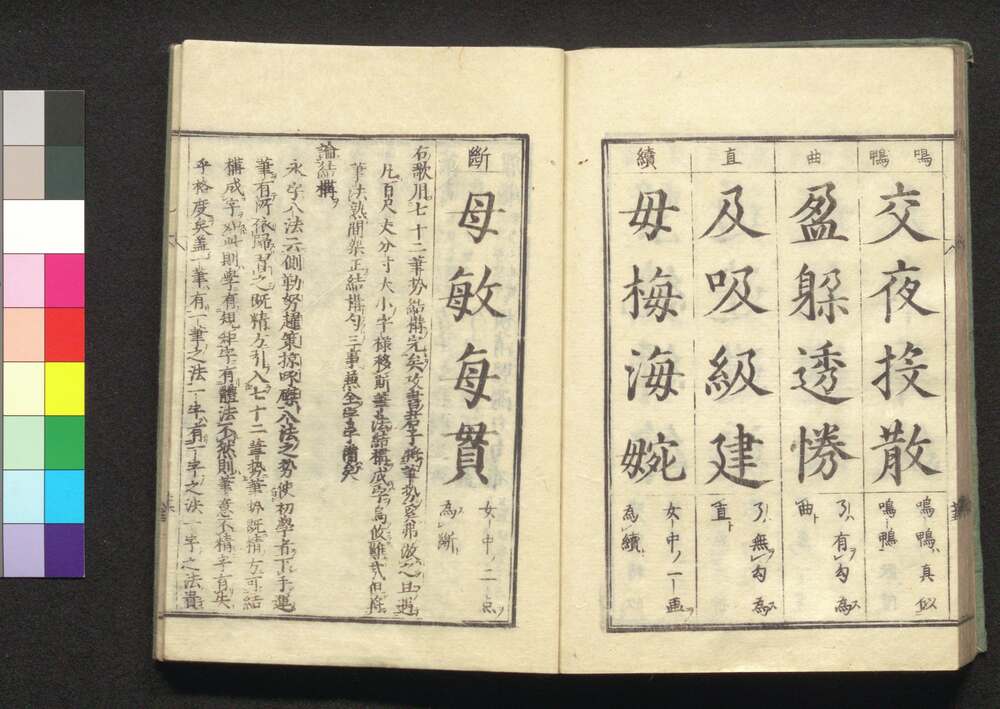 鳴鴨
交夜授散
鳴鴨真似
鳴ト鴨
曲
盈躲透勝
了ハ有ヲ勾為ス
曲ト
直
及吸級建
了ハ無ヲ勾為ス
直ト
續
毋梅海婉
女ト中ノ一畫
為續
斷
母敏每貫
女ト中ノ二点
為斷
右歌用七十二筆勢結構完矣攻書君子將筆勢
凡百尺丈分寸大小字樣移前筆法結構成字
筆法熟間架正結構勻三事兼全學字備矣
論結構
永字八法云側勒努趯策掠啄磔八法之勢使初學者下手運
筆有所依歸習之既精方引入七十二筆勢筆勢既精方可結
構成字如此則學有規矩字有體法不然則筆意不精字有失
乎格度矣蓋一筆有一筆之法一字有一字之法一字之法貴